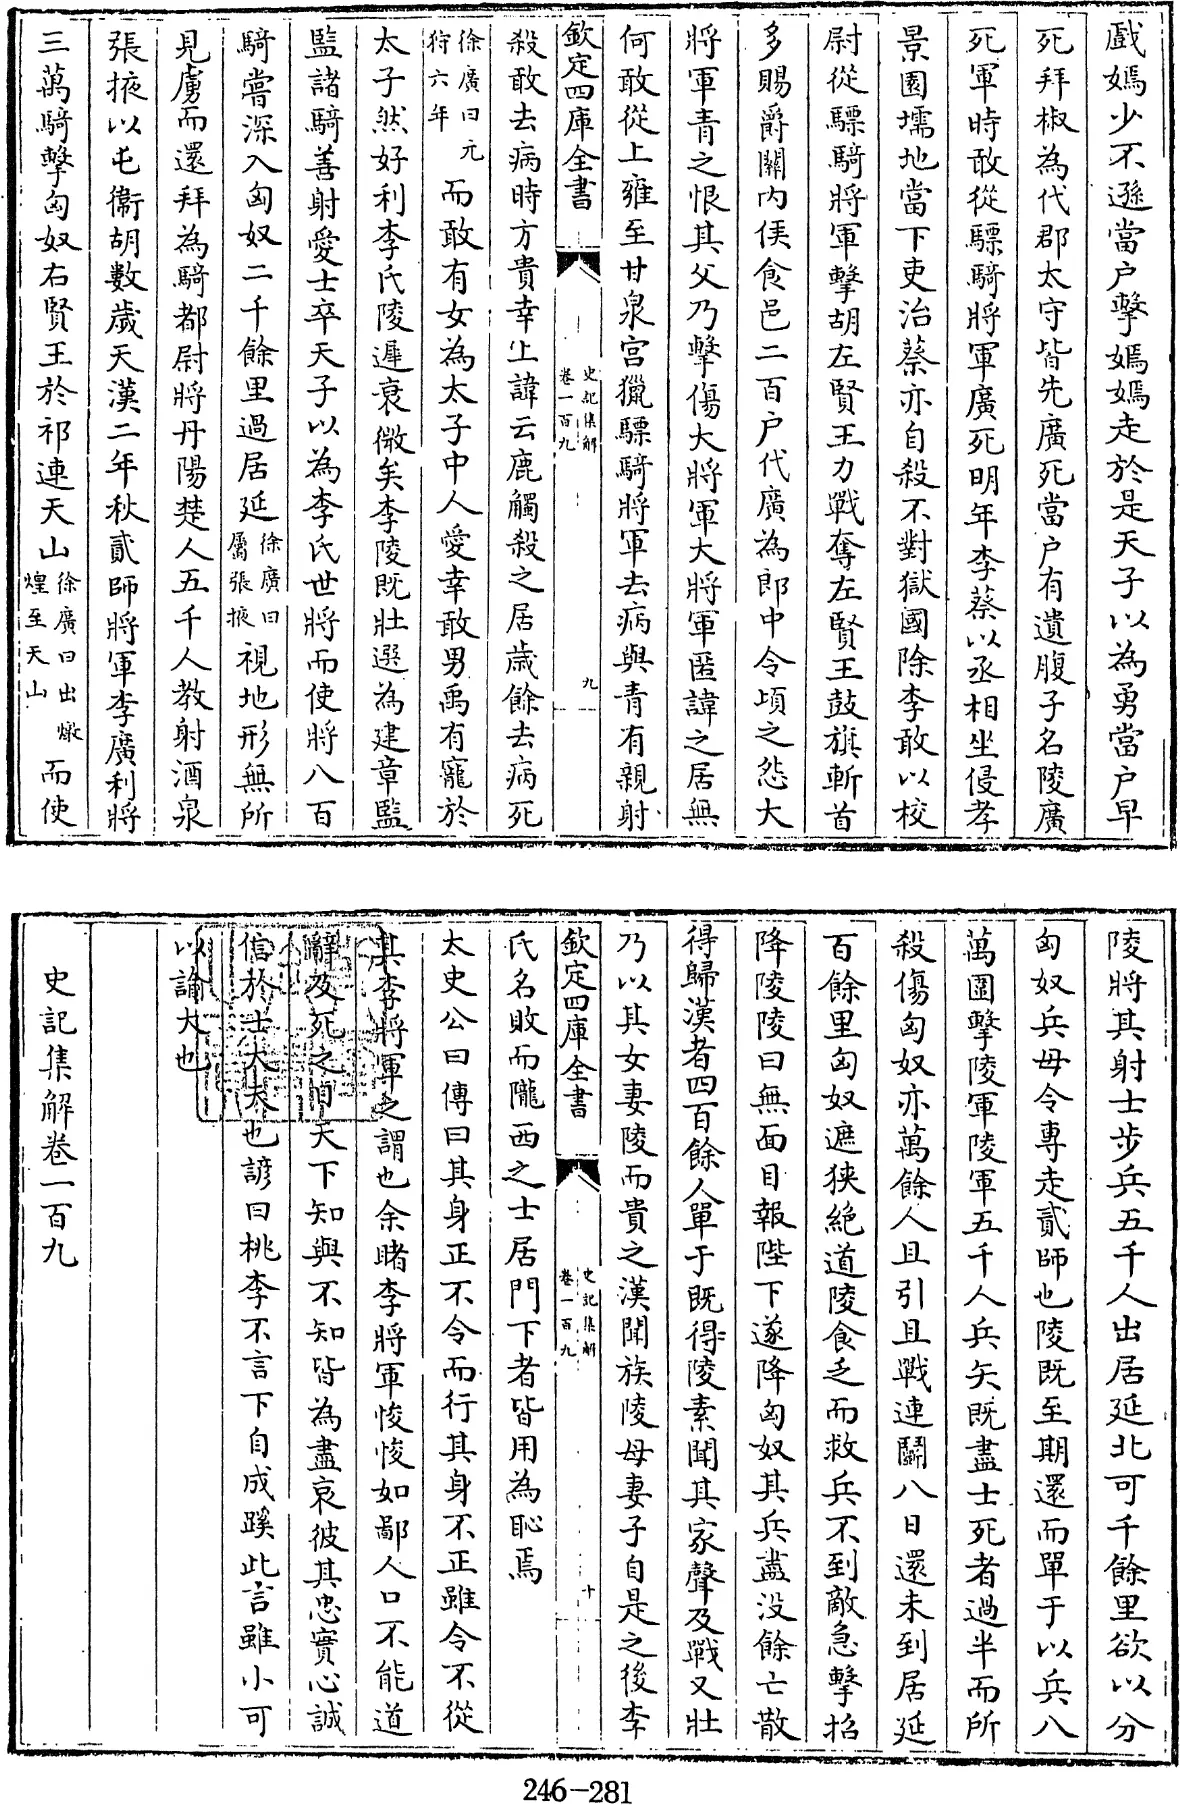 戲嫣少不遜當户擊嫣嫣走於是天子以為勇當户早
死拜椒為代郡太守皆先廣死當户有遺腹子名陵廣
死軍時敢從驃騎將軍廣死明年李蔡以丞相坐侵孝
景園壖地當下吏治蔡亦自殺不對獄國除李敢以校
尉從驃騎將軍擊胡左賢王力戰奪左賢王鼓旗斬首
多賜爵關内侯食邑二百户代廣為郎中令頃之怨大
將軍青之恨其父乃擊傷大將軍大將軍匿諱之居無
何敢從上雍至甘泉宫獵驃騎將軍去病與青有親射
欽定四庫全書
史記集解
卷一百九
九
殺敢去病時方貴幸上諱云鹿觸殺之居歲餘去病死
徐廣曰元
狩六年
而敢有女為太子中人愛幸敢男禹有寵於
太子然好利李氏陵遲衰微矣李陵既壯選為建章監
監諸騎善射愛士卒天子以為李氏世將而使將八百
騎嘗深入匈奴二千餘里過居延
徐廣曰
屬張掖
視地形無所
見虜而還拜為騎都尉將丹陽楚人五千人教射酒泉
張掖以屯衞胡數歲天漢二年秋貳師將軍李廣利將
三萬騎擊匈奴右賢王於祁連天山
徐廣曰出燉
煌至天山
而使
陵將其射士步兵五千人出居延北可千餘里欲以分
匈奴兵毋令專走貳師也陵既至期還而單于以兵八
萬圍擊陵軍陵軍五千人兵矢既盡士死者過半而所
殺傷匈奴亦萬餘人且引且戰連鬭八日還未到居延
百餘里匈奴遮狹絶道陵食乏而救兵不到敵急擊招
降陵陵曰無面目報陛下遂降匈奴其兵盡没餘亡散
得歸漢者四百餘人單于既得陵素聞其家聲及戰又壯
乃以其女妻陵而貴之漢聞族陵母妻子自是之後李
欽定四庫全書
史記集解
卷一百九
十
氏名敗而隴西之士居門下者皆用為恥焉
太史公曰傳曰其身正不令而行其身不正雖令不從
其李將軍之謂也余睹李將軍悛悛如鄙人口不能道
辭及死之日天下知與不知皆為盡哀彼其忠實心誠
信於士大夫也諺曰桃李不言下自成蹊此言雖小可
以諭大也
史記集解卷一百九
246-281